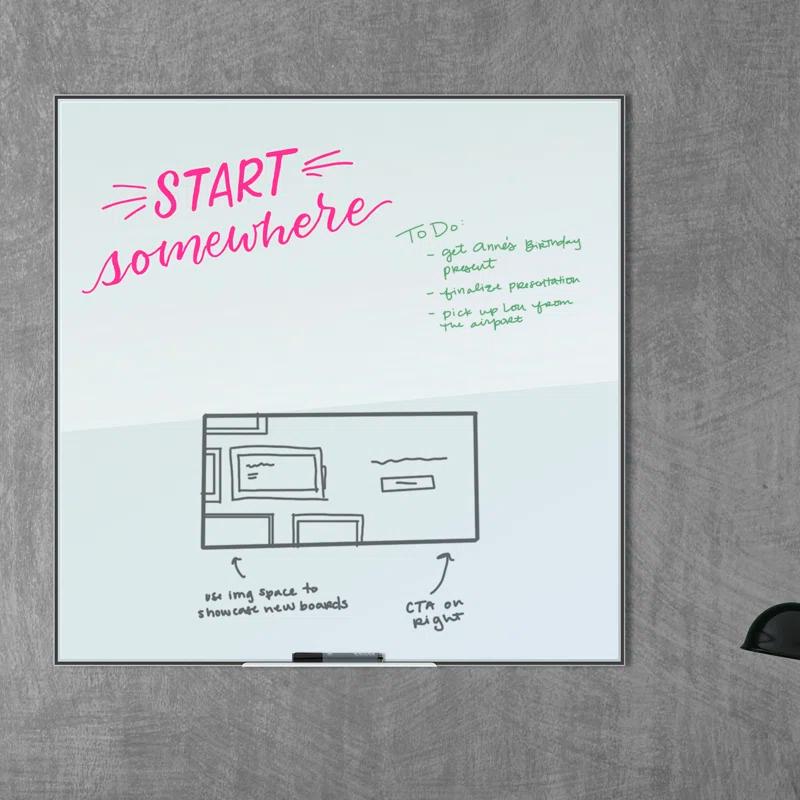 START
somewhere
To Do:
- get Anne's Birthday
present
- finalize presentation
- pick up Lou from
the airport
use img space to
showcase new boards
CTA on
Right